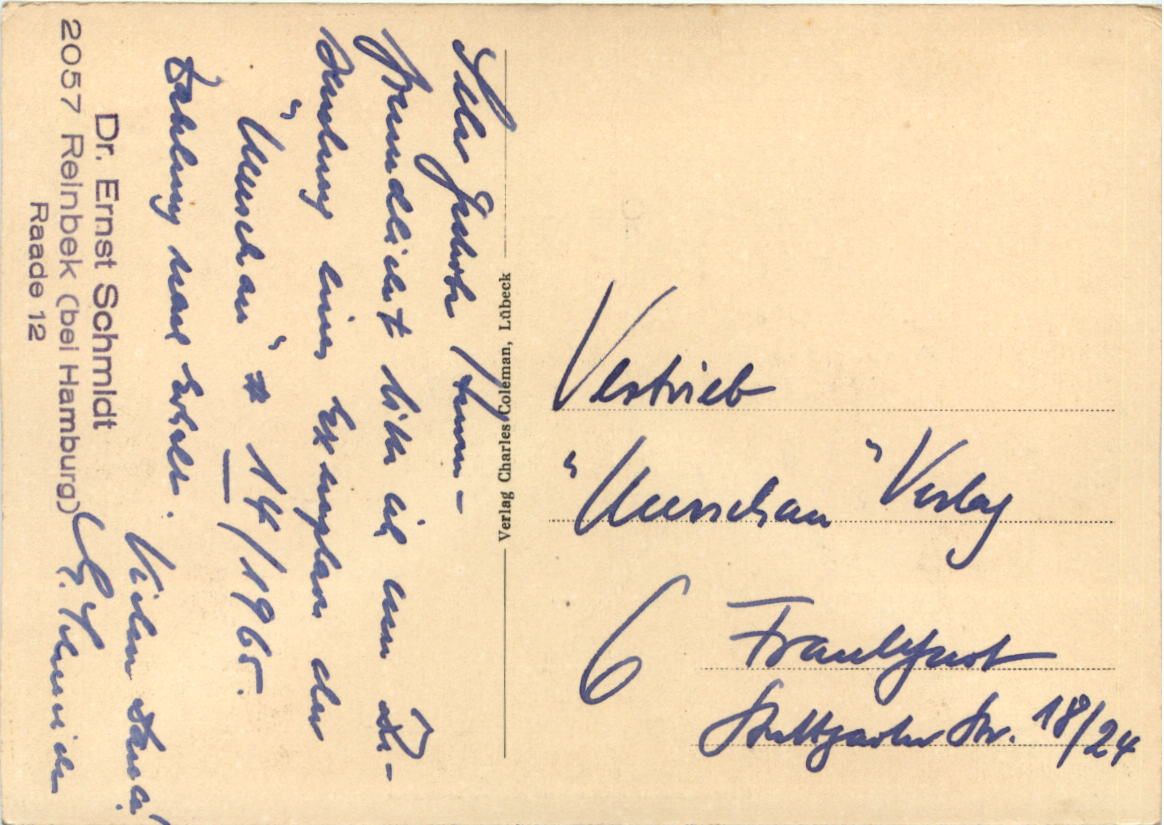 Sehr geehrte Herren –
freundlichst bitte ich um Zu-
sendung eines Exemplars der
"Umschau" # 14/1965.
Zahlung nach Erhalt.
Vielen Dank!
E. Schmidt
Dr. Ernst Schmidt
2057 Reinbek (bei Hamburg)
Raade 12
Verlag Charles Coleman, Lübeck
Vertrieb
"Umschau" Verlag
6 Frankfurt
Stuttgarter Str. 18/24